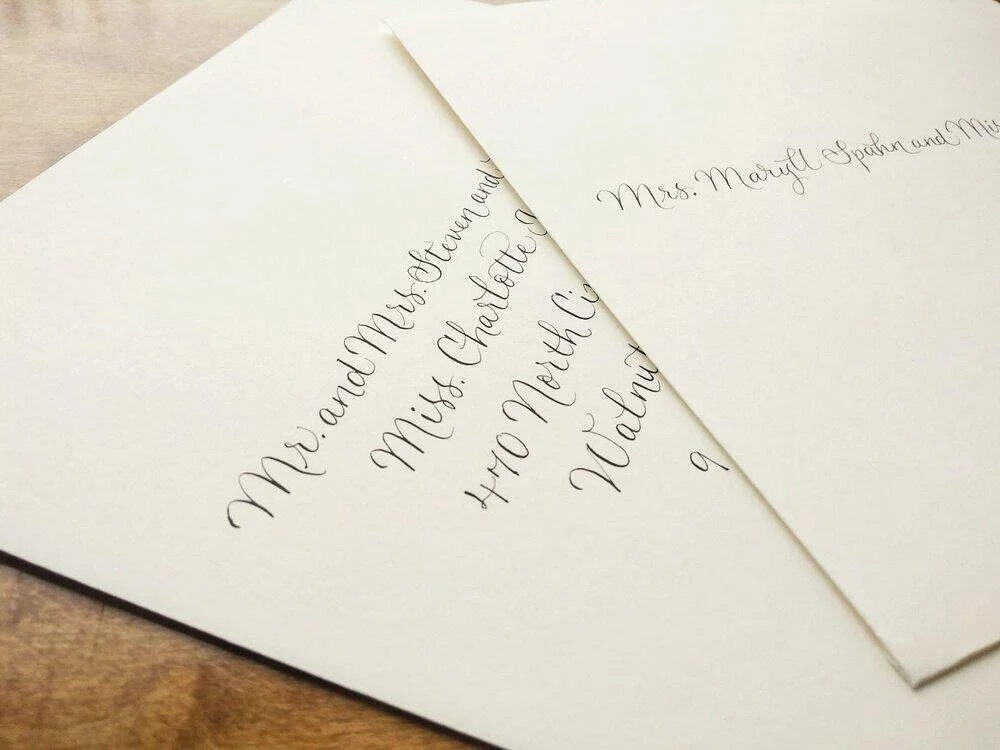 Mr. and Mrs. Steven and
Miss. Charlotte
470 North
Walnut
9
Mrs. Maryll Spahn and